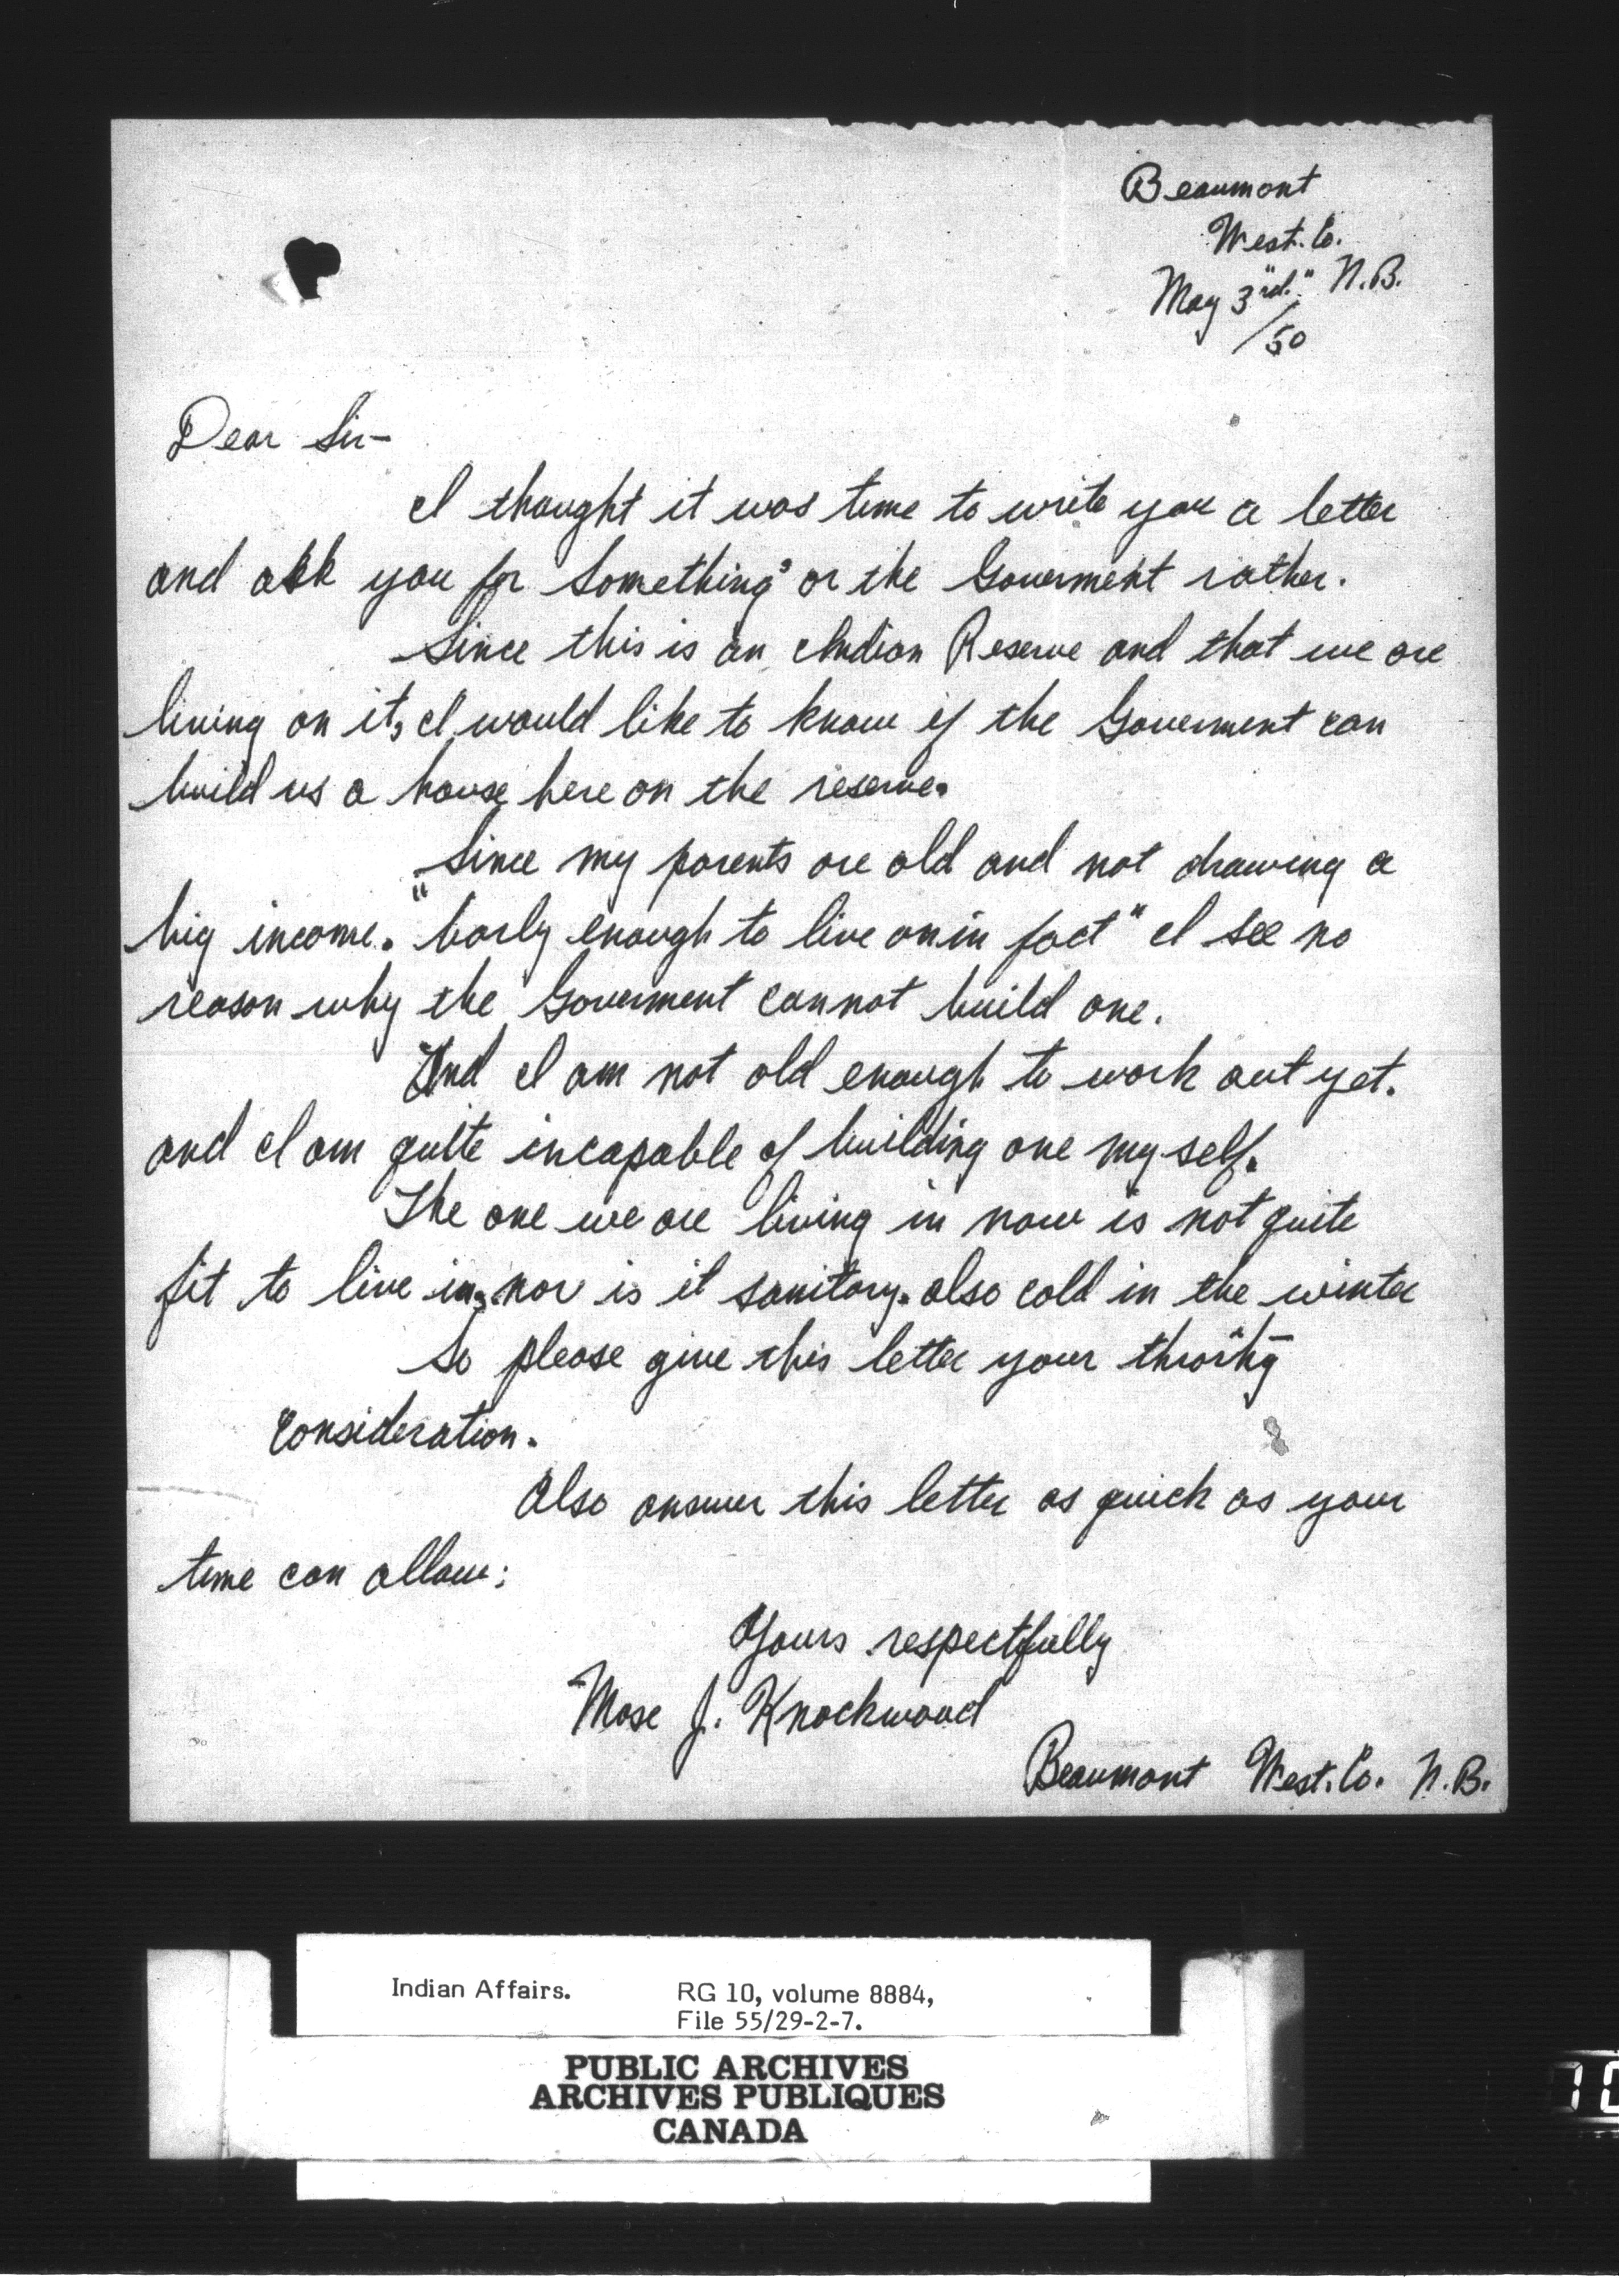 Beaumont
West. Co.
May 3"rd." N.B.
/50
Dear Sir-
I thought it was time to write you a letter
and ask you for something" or the Goverment rather.
Since this is an Indian Reserve and that we are
living on it, I would like to know if the Goverment can
build us a house here on the reserve.
Since my parents are old and not drawing a
big income. "barly enough to live on in fact" I see no
reason why the Goverment cannot build one.
And I am not old enough to work out yet.
and I am quite incapable of building one my self.
The one we are living in now is not quite
fit to live in, nor is it sanitary. also cold in the winter
So please give this letter your
consideration.
Also answer this letter as quick as your
time can allow;
Yours respectfully
Mose J. Knockwood
Beaumont West. Co. N.B.
Indian Affairs. RG 10, volume 8884,
File 55/29-2-7.
PUBLIC ARCHIVES
ARCHIVES PUBLIQUES
CANADA